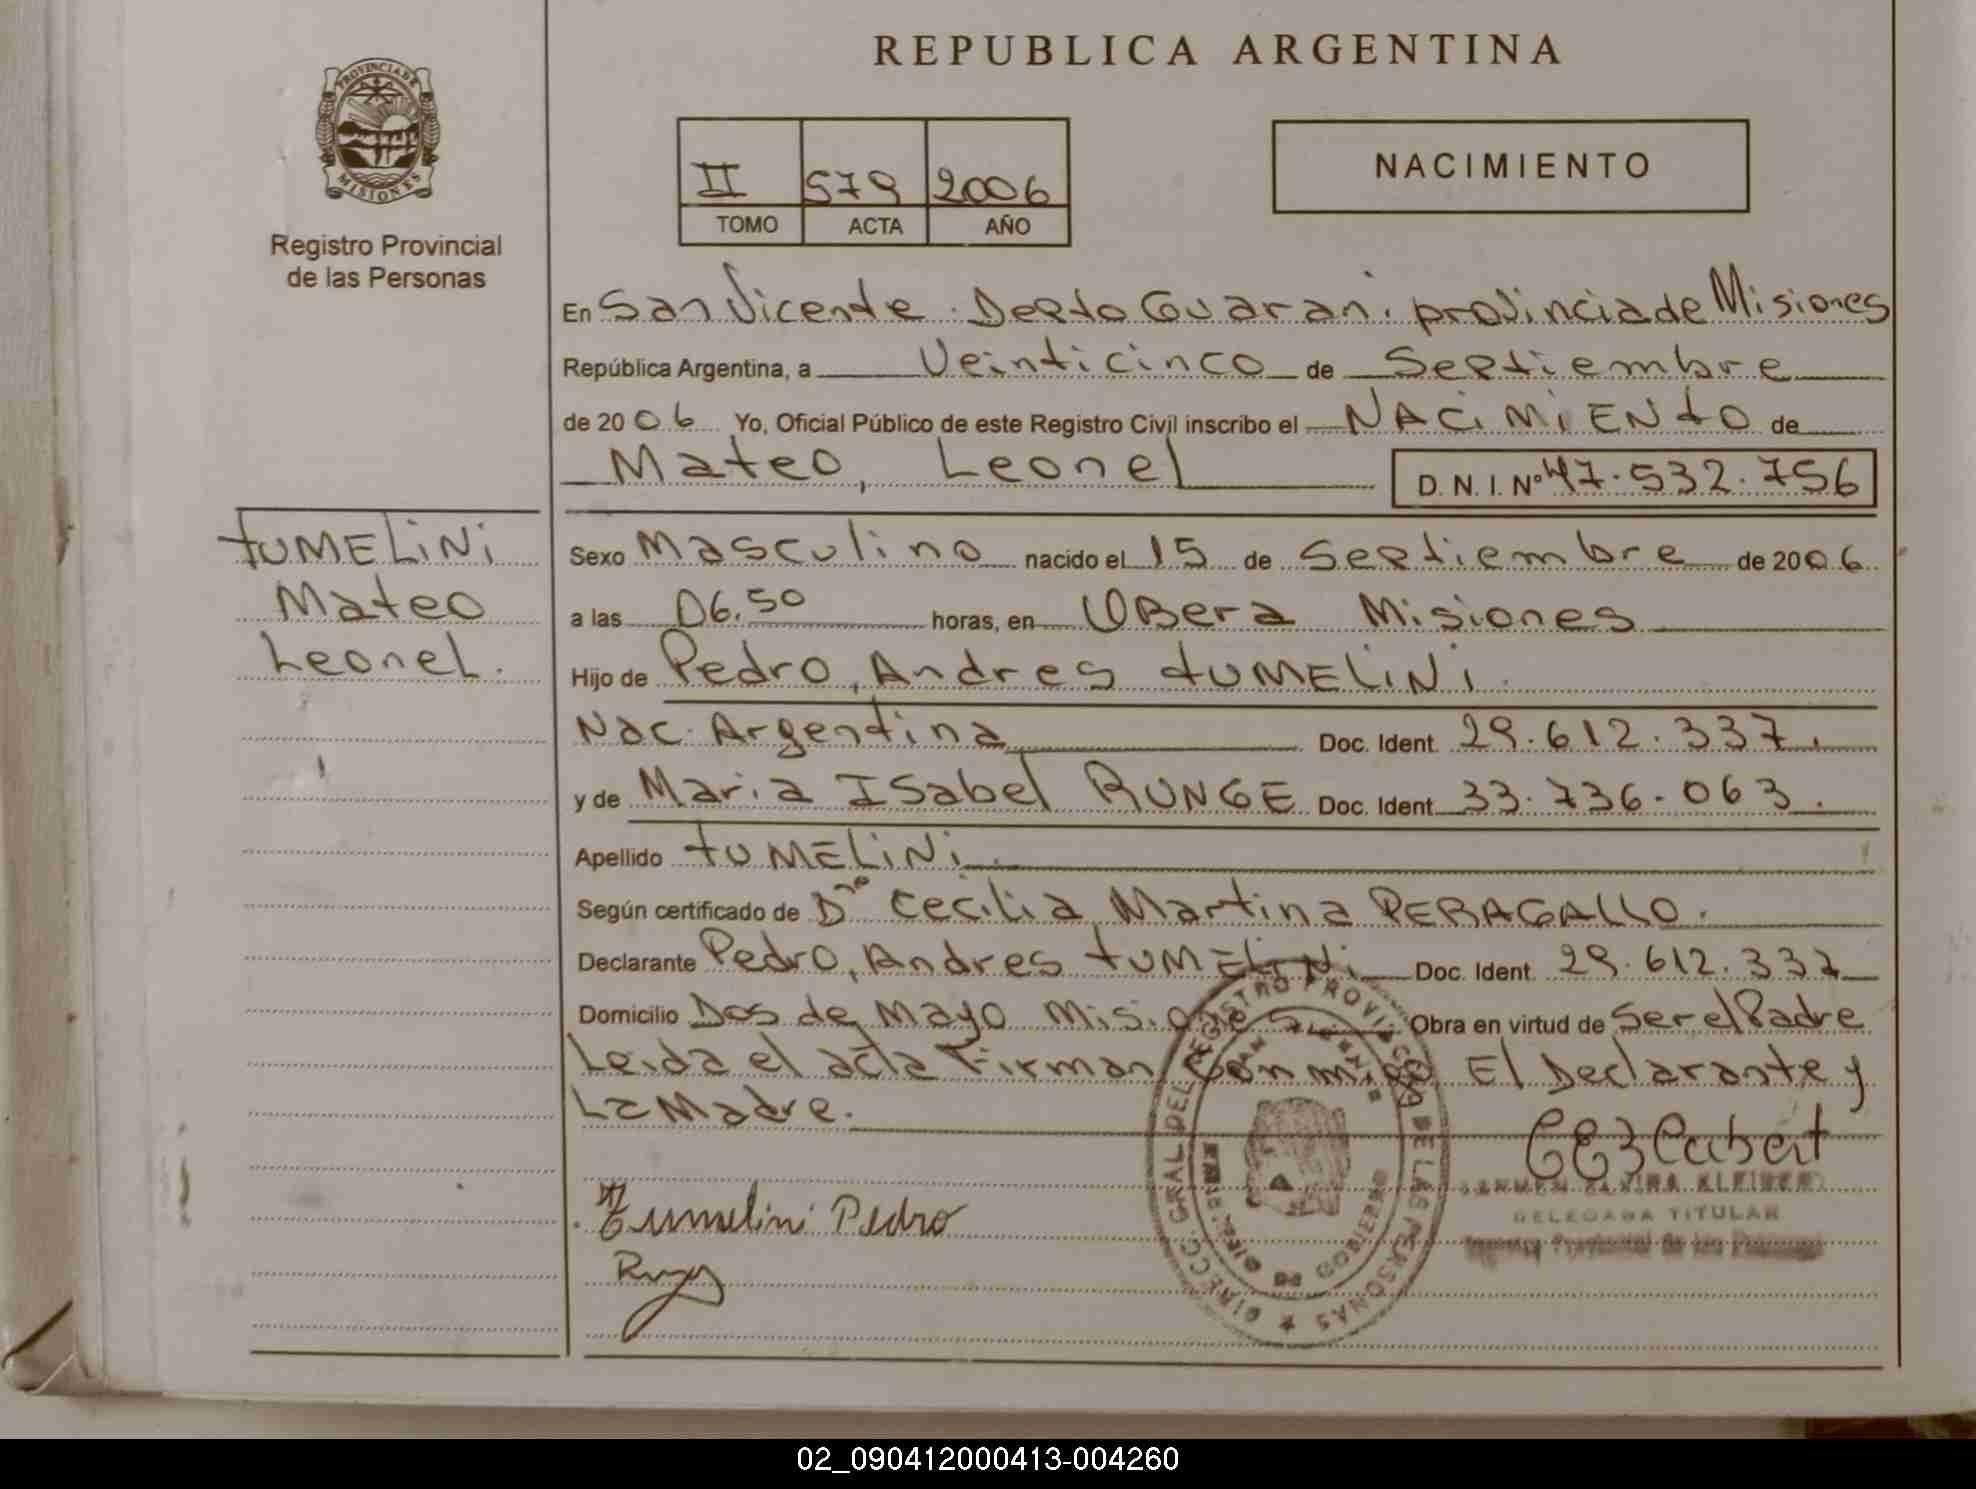 REPUBLICA ARGENTINA
PROVINCIA DE MISIONES
Registro Provincial
de las Personas
II 579 2006
TOMO ACTA AÑO
NACIMIENTO
En San Vicente. Depto Guaraní. provincia de Misiones
República Argentina, a Veinticinco de Septiembre
de 2006 Yo, Oficial Público de este Registro Civil inscribo el NACIMIENTO de
Mateo, Leonel D. N. I. Nº 47.532.756
TUMELINI
Mateo
Leonel.
Sexo Masculino nacido el 15 de Septiembre de 2006
a las 06.50 horas, en Obera Misiones
Hijo de Pedro, Andres TUMELINI.
Nac. Argentina Doc. Ident. 29.612.337.
y de Maria Isabel RUNGE Doc. Ident. 33.736.063.
Apellido TUMELINI.
Según certificado de Dra Cecilia Martina PERAGALLO.
Declarante Pedro, Andres TUMELINI Doc. Ident. 29.612.337
Domicilio Dos de Mayo Misiones Obra en virtud de Ser el Padre
Leida el acta Firman Conmigo El Declarante y
La Madre.
Tumelini Pedro
DIRECC. GRAL DEL REGISTRO PROVINCIAL DE LAS PERSONAS
GOBIERNO
DELEGADA TITULAR
Provincial de las Personas
02_090412000413-004260